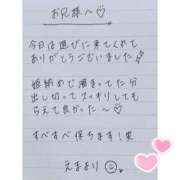 お兄様へ♡
今日は遊びに来てくれて
ありがとうございました
姫納めで溜まってた分
出し切ってスッキリしても
らえて良かった〜♡
すべすべ保ちます!笑
えまより